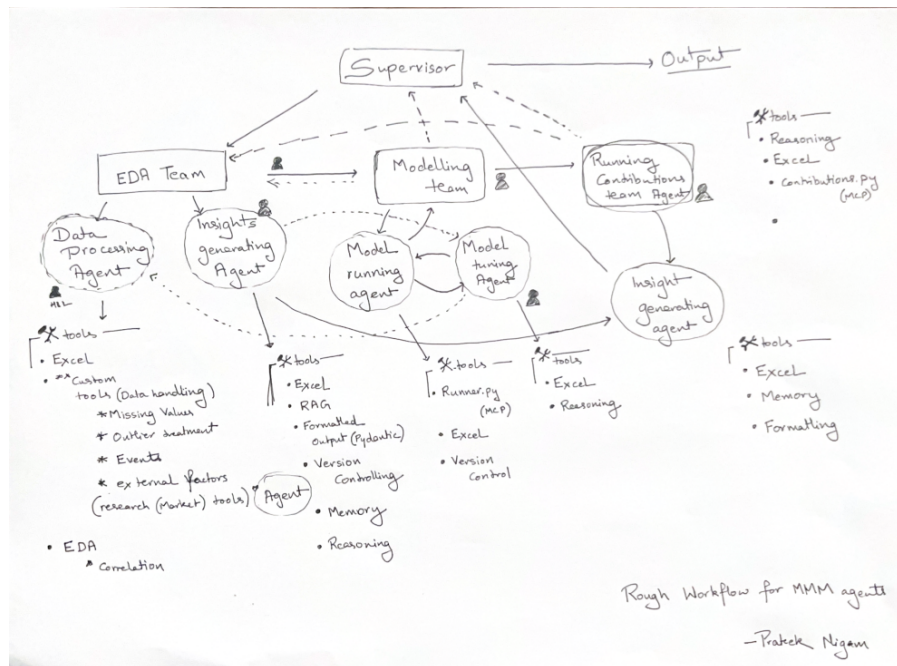 Supervisor
Output
EDA Team
Modelling
team
Running
Contributions
team Agent
tools
• Reasoning
• Excel
• Contributions.py
(MCP)
•
Data
Processing
Agent
Insights
generating
Agent
Model
running
agent
Model
tuning
Agent
Insight
generating
agent
tools
• Excel
• **Custom
tools (Data handling)
* Missing Values
* Outlier treatment
* Events
* external factors
(research (Market) tools)
* Agent
• EDA
* Correlation
tools
• Excel
• RAG
• Formatted
output (Pydantic)
• Version
Controlling
• Memory
• Reasoning
tools
• Runner.py
(MCP)
• Excel
• Version
Control
tools
• Excel
• Reasoning
tools
• Excel
• Memory
• Formatting
Rough Workflow for MMM agents
- Prateek Nigam